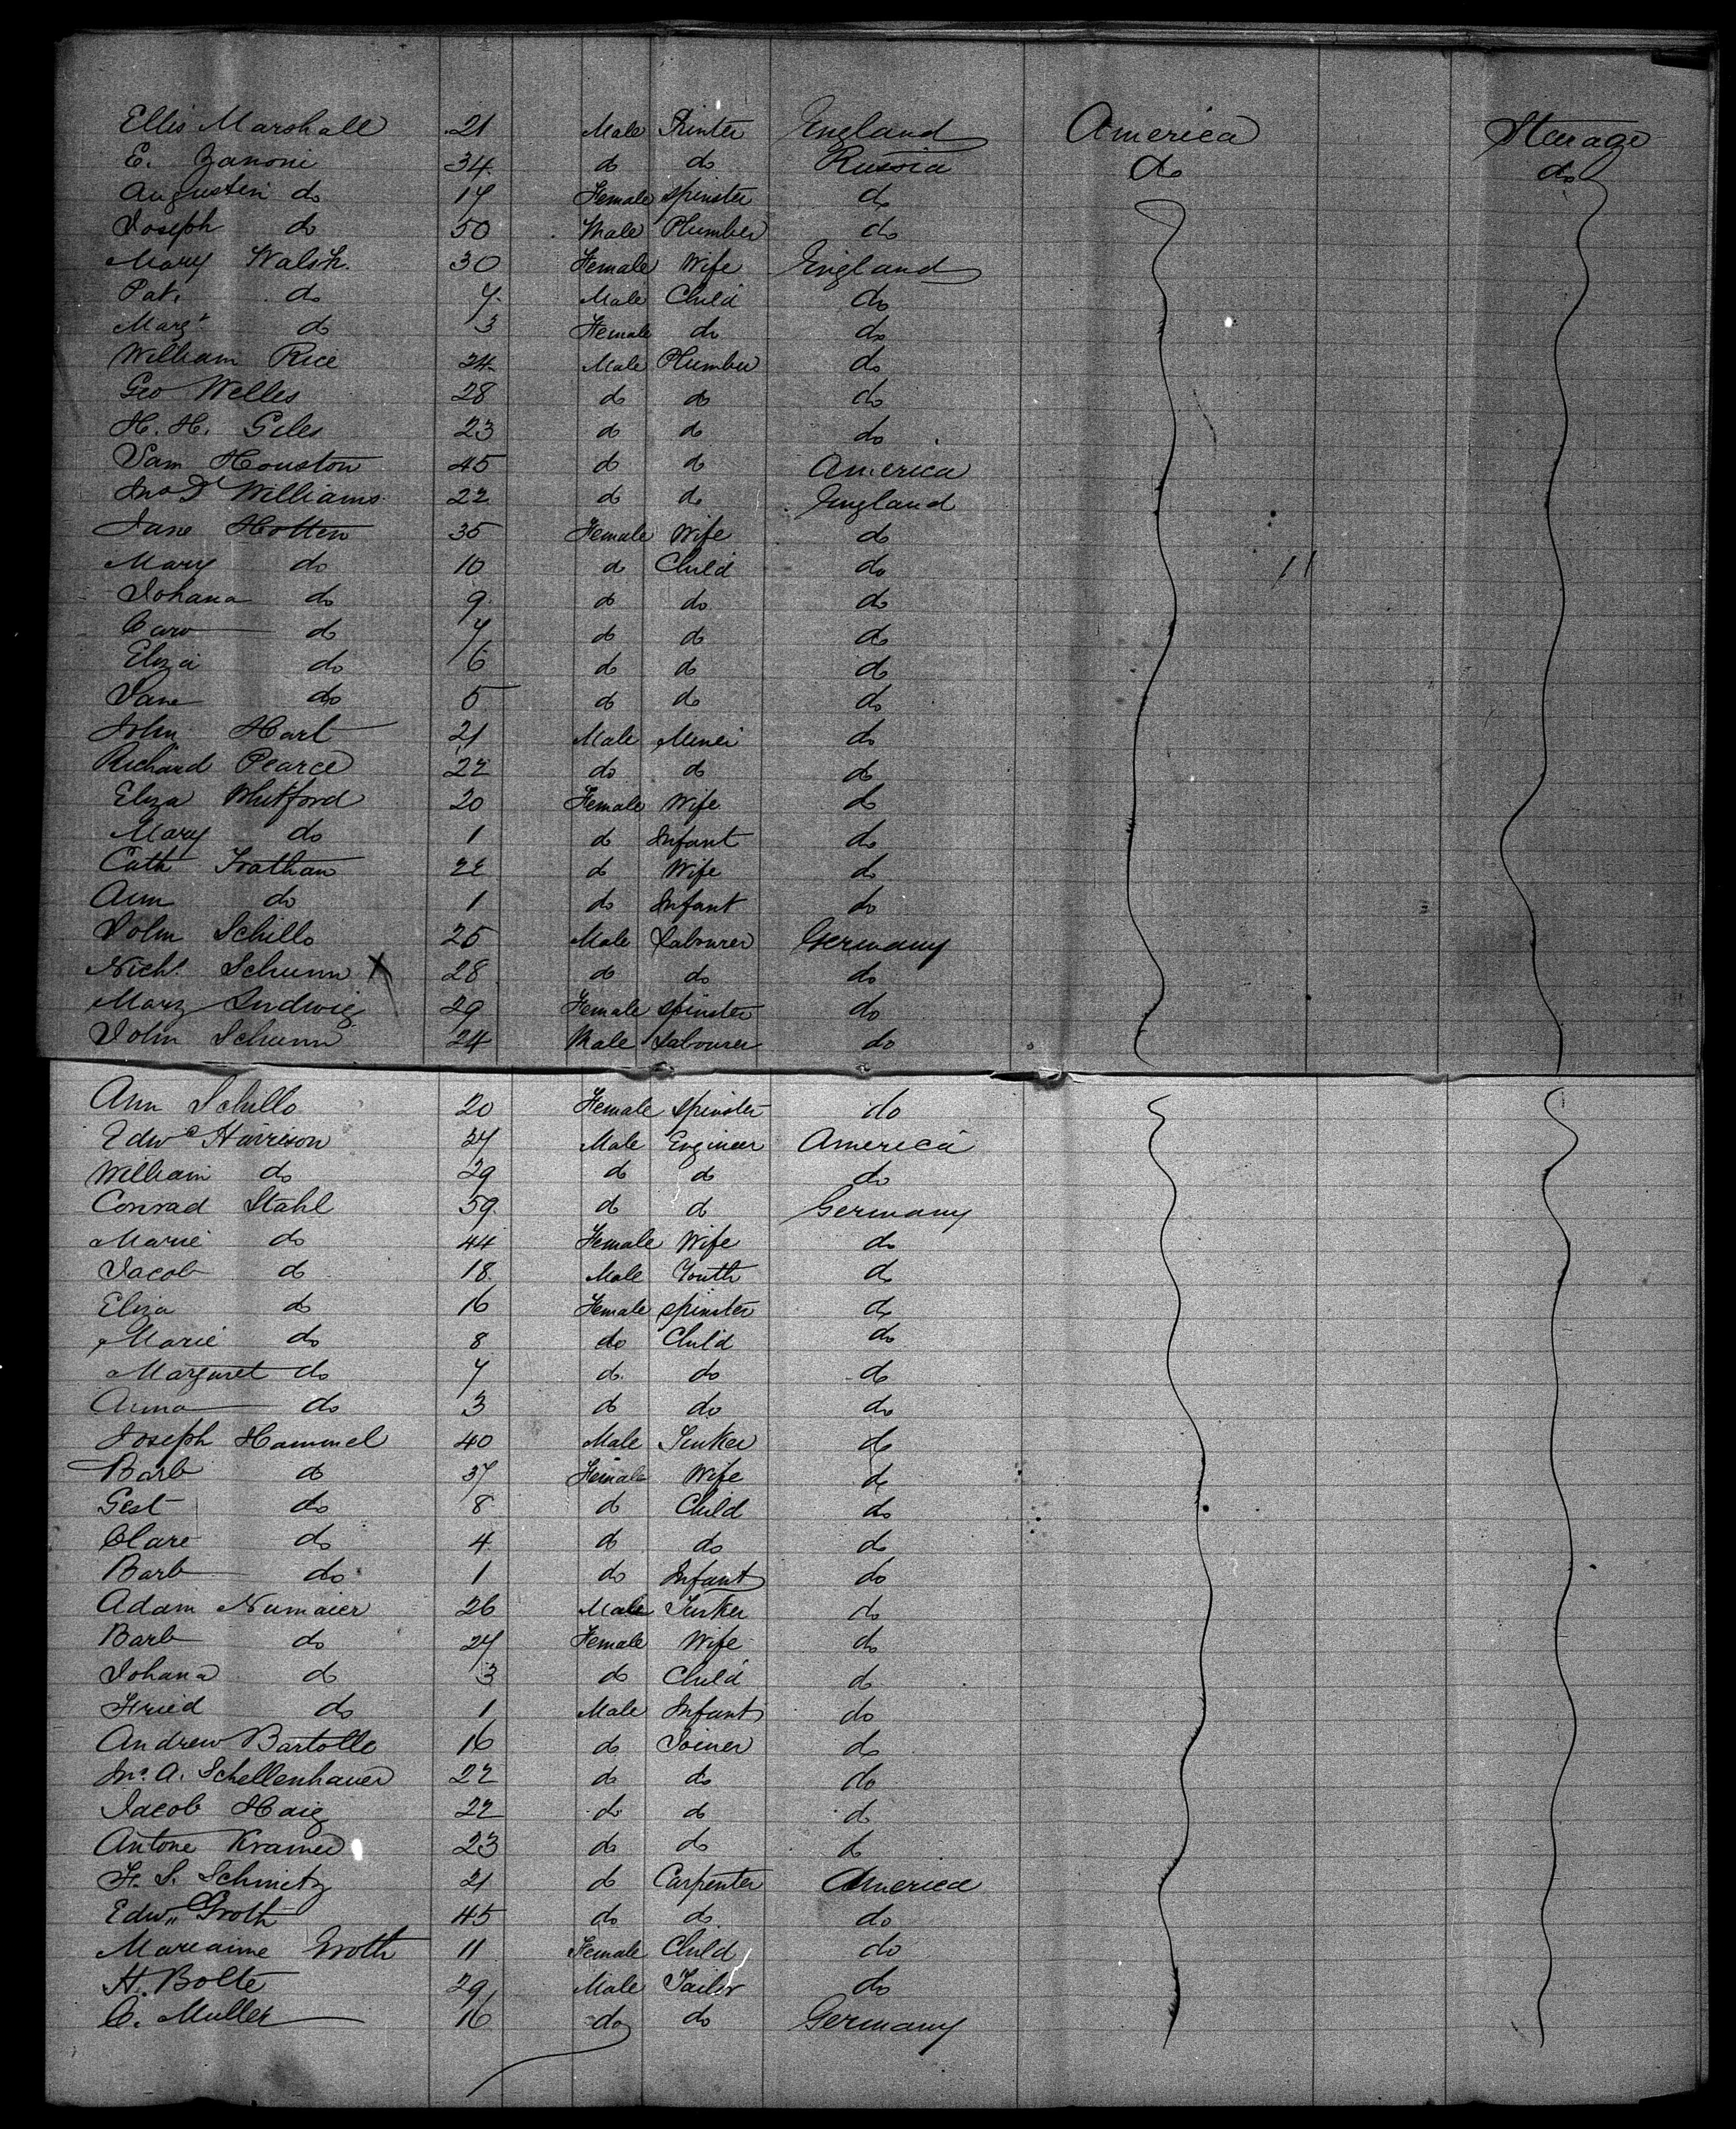 Ellis Marshall 21 Male Printer England America Steerage
E. Zanoni 34 do do Russia do do
Augustin do 17 Female Spinster do
Joseph do 50 Male Plumber do
Mary Walsh. 30 Female Wife England
Pat. do 7 Male Child do
Margt do 3 Female do do
William Rice 24 Male Plumber do
Geo Welles 28 do do do
H. H. Giles 23 do do do
Sam Houston 45 do do America
Jno D Williams 22 do do England
Jane Hotten 35 Female Wife do
Mary do 10 do Child do
Johana do 9 do do do
Caro do 7 do do do
Eliza do 6 do do do
Jane do 5 do do do
John Hart 21 Male Miner do
Richard Pearce 22 do do do
Eliza Whitford 20 Female Wife do
Mary do 1 do Infant do
Cath Trathan 22 do Wife do
Ann do 1 do Infant do
John Schillo 25 Male Labourer Germany
Nichs. Schunn X 28 do do do
Mary Ludwig 29 Female Spinster do
John Schunn 24 Male Labourer do
Ann Schillo 20 Female Spinster do
Edwd Harrison 27 Male Engineer America
William do 29 do do do
Conrad Stahl 59 do do Germany
Marie do 44 Female Wife do
Jacob do 18 Male Youth do
Eliza do 16 Female Spinster do
Marie do 8 do Child do
Margaret do 7 do do do
Anna do 3 do do do
Joseph Hammel 40 Male Tinker do
Barb do 37 Female Wife do
Gest do 8 do Child do
Clare do 4 do do do
Barb do 1 do Infant do
Adam Numaier 26 Male Tinker do
Barb do 27 Female Wife do
Johana do 3 do Child do
Fried do 1 Male Infant do
Andrew Bartolle 16 do Joiner do
Jno. A. Schellenhauer 22 do do do
Jacob Haig 22 do do do
Antone Kramer 23 do do do
F. S. Schmitz 21 do Carpenter America
Edw. Groth 45 do do do
Mareaime Groth 11 Female Child do
H. Bolte 29 Male Tailor do
C. Muller 16 do do Germany